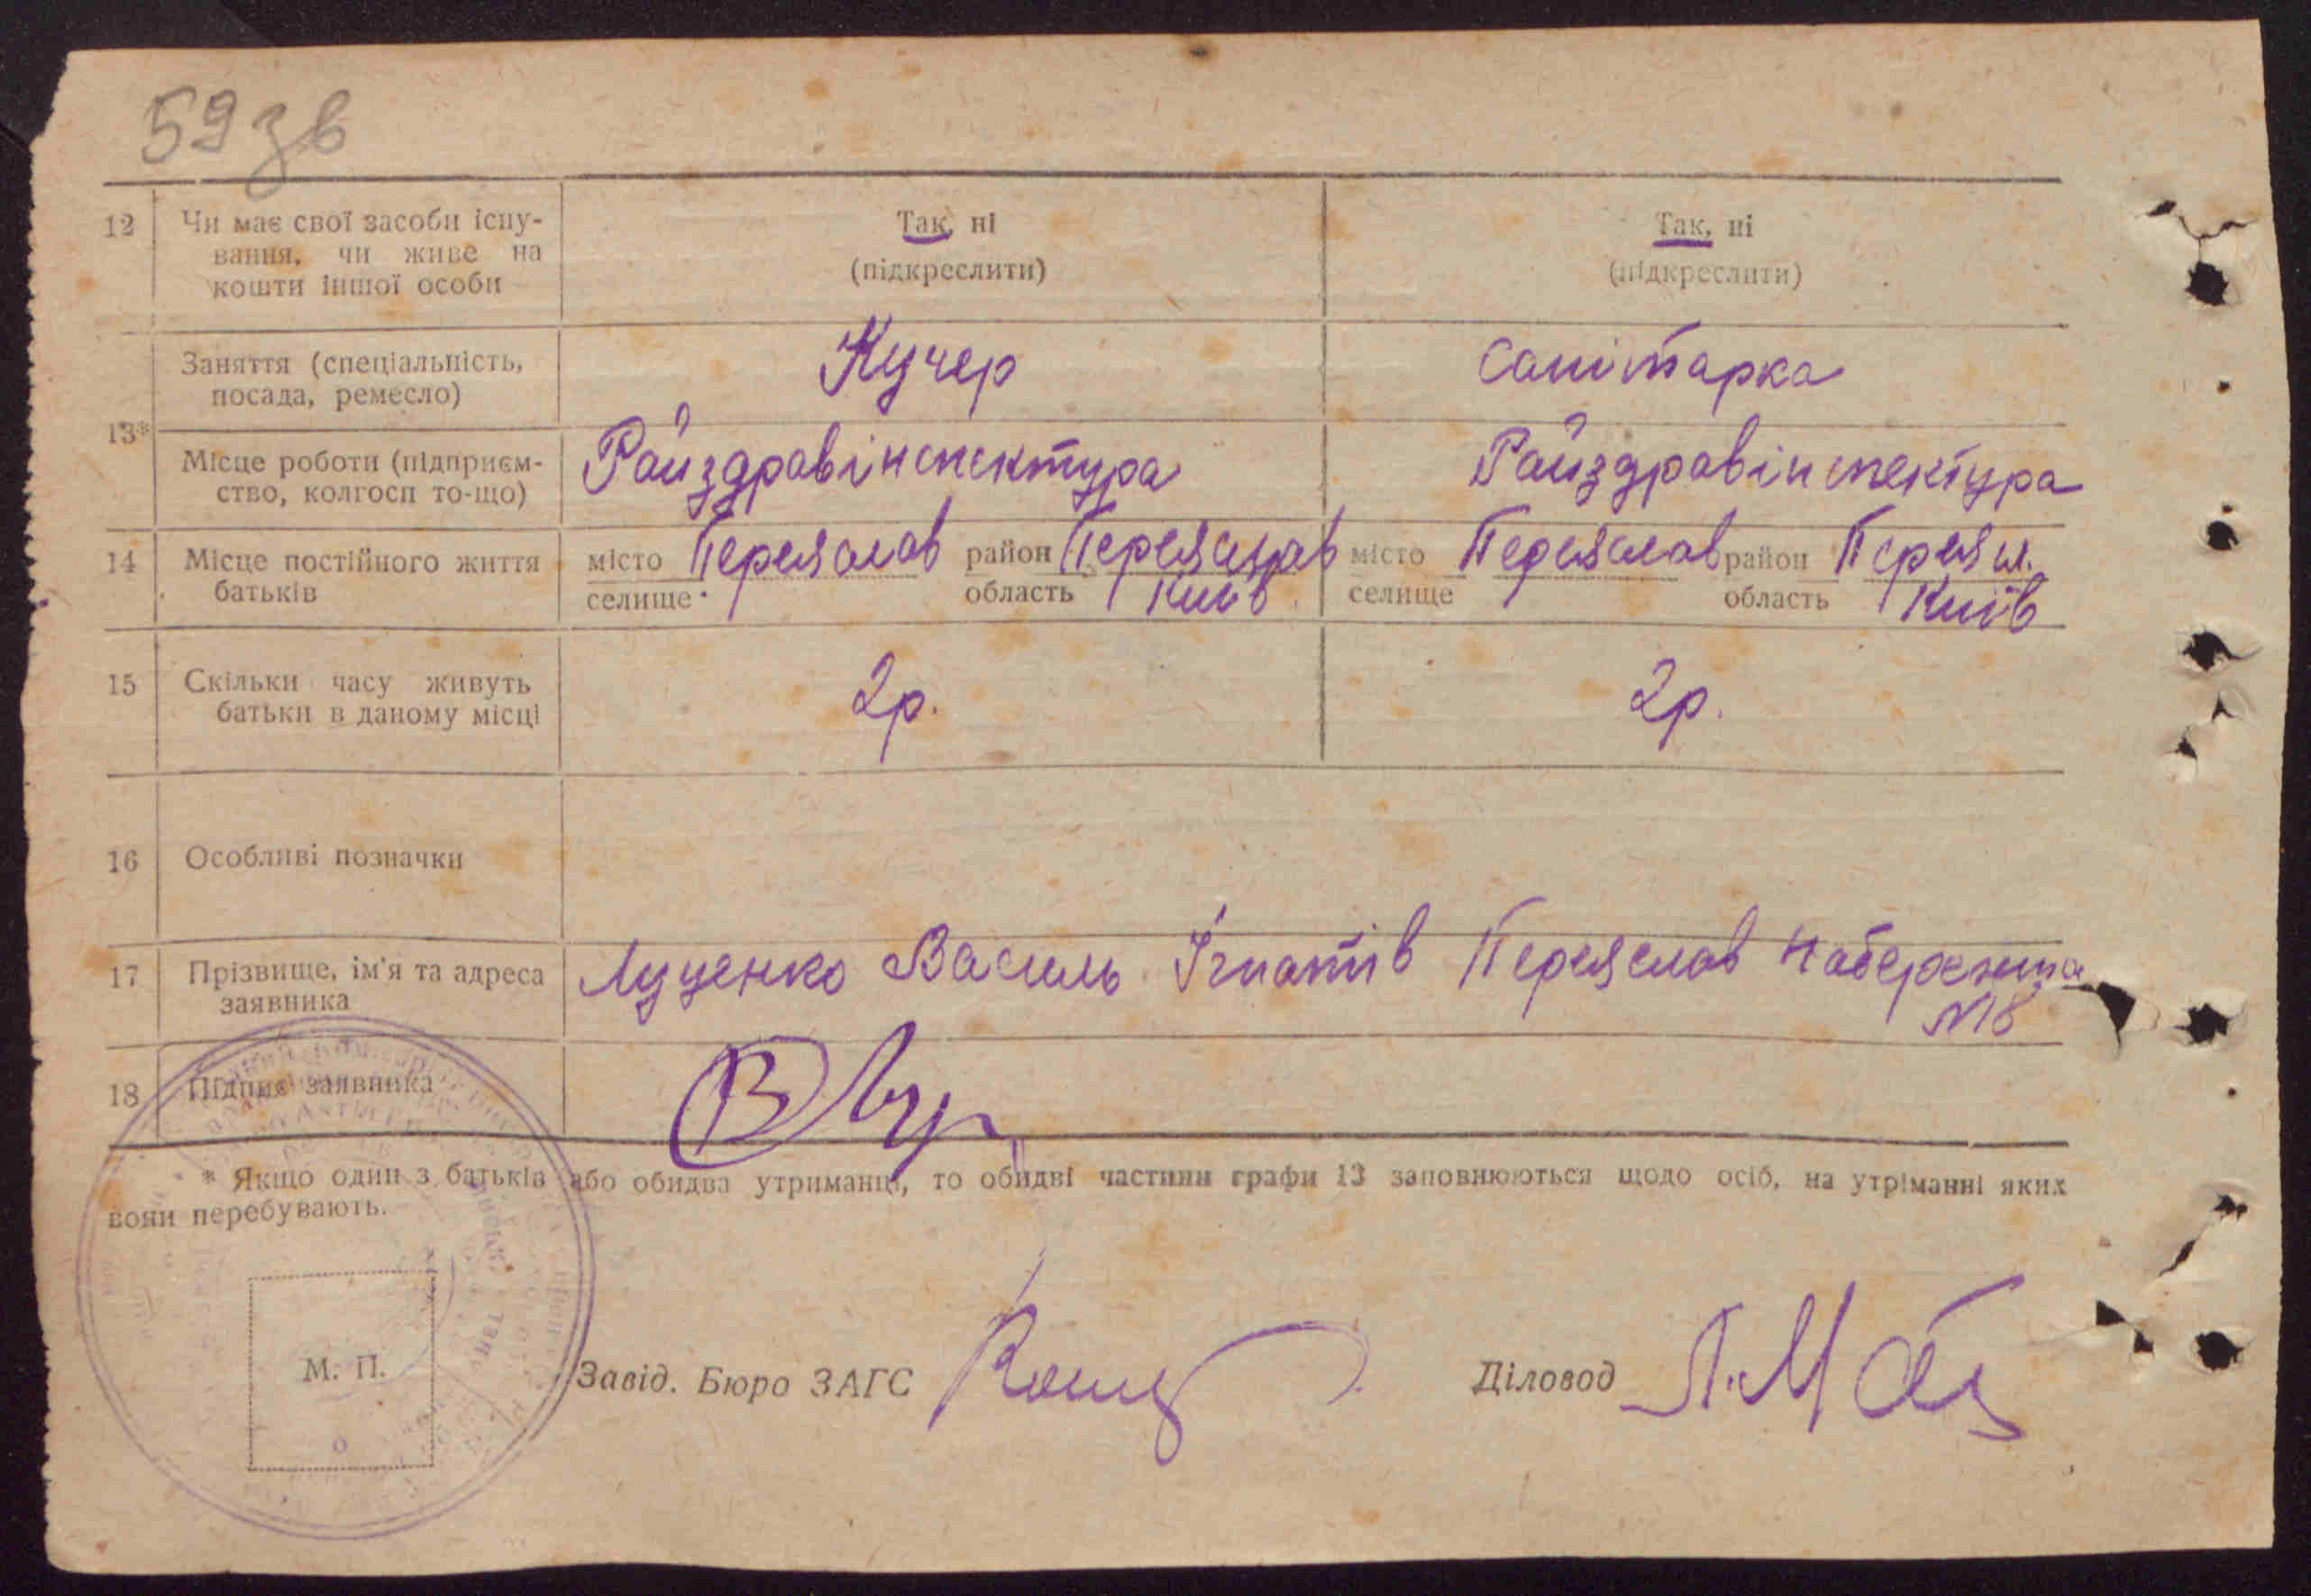 59 зв
12 Чи має свої засоби існу- Так, ні Так, ні
вання, чи живе на (підкреслити) (підкреслити)
кошти іншої особи
13* Заняття (спеціальність, Кучер Санітарка
посада, ремесло)
Місце роботи (підприєм- Райздравінспектура Райздравінспектура
ство, колгосп то-що)
14 Місце постійного життя місто Переяслав район Переяслав місто Переяслав район Переясл.
батьків селище область Київ селище область Київ
15 Скільки часу живуть 2р. 2р.
батьки в даному місці
16 Особливі позначки
17 Прізвище, ім'я та адреса Луценко Василь Ігнатів Переяслав Набережна
заявника №8
18 Підпис заявника В Луц
* Якщо один з батьків або обидва утриманці, то обидві частини графи 13 заповнюються щодо осіб, на утріманні яких
вони перебувають.
М. П.
Завід. Бюро ЗАГС Діловод